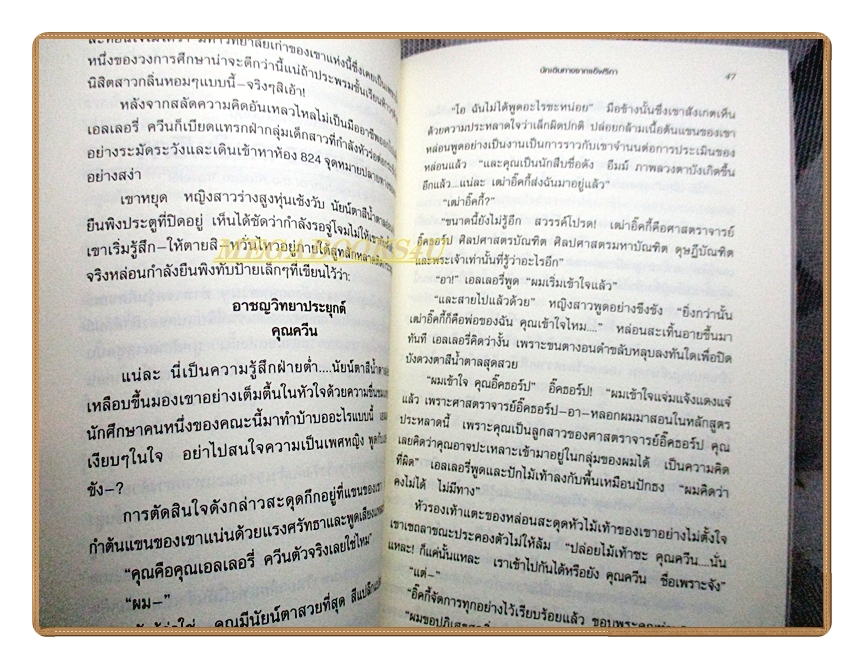 หนึ่งของวงการศึกษาน่าจะดีกว่านี้แน่ถ้าประพรมชั้นเรียนด้วย
นิสิตสาวกลิ่นหอมๆแบบนี้–จริงๆสิเอ้า!
หลังจากสลัดความคิดอันเหลวไหลไม่เป็นมืออาชีพออก
เอลเลอรี่ ควีนก็เบียดแทรกฝ่ากลุ่มเด็กสาวที่กำลังหัวร่อต่อกระซิก
อย่างระมัดระวังและเดินเข้าหาห้อง 824 จุดหมายปลายทาง
อย่างสง่า
เขาหยุด หญิงสาวร่างสูงหุ่นเช้งวับ นัยน์ตาสีน้ำตาล
ยืนพิงประตูที่ปิดอยู่ เห็นได้ชัดว่ากำลังรอจู่โจมไม่ให้
เขาเริ่มรู้สึก–ให้ตายสิ–หวั่นไหวอยู่ภายใต้สูทสักหลาด
จริงหล่อนกำลังยืนพิงทับป้ายเล็กๆที่เขียนไว้ว่า:
อาชญวิทยาประยุกต์
คุณควีน
แน่ละ นี่เป็นความรู้สึกฝ่ายต่ำ....นัยน์ตาสีน้ำตาล
เหลือบขึ้นมองเขาอย่างเต็มตื้นในหัวใจด้วยความชื่นชม
นักศึกษาคนหนึ่งของคณะนี้มาทำบ้าบออะไรแบบนี้
เงียบๆในใจ อย่าไปสนใจความเป็นเพศหญิง
ขัง–?
การตัดสินใจดังกล่าวสะดุดกึกอยู่ที่แขนของเขา
กำต้นแขนของเขาแน่นด้วยแรงศรัทธาและพูดเสียง
“คุณคือคุณเอลเลอรี่ ควีนตัวจริงเลยใช่ไหม”
“ผม–”
คุณมีนัยน์ตาสวยที่สุด
นักเดินทางจากแอฟริกา
47
“โอ ฉันไม่ได้พูดอะไรซะหน่อย” มือข้างนั้นซึ่งเขาสังเกตเห็น
ด้วยความประหลาดใจว่าเล็กผิดปกติ ปล่อยกล้ามเนื้อต้นแขนของเขา
หล่อนพูดอย่างเป็นงานเป็นการราวกับเขาจำนนต่อการประเมินของ
หล่อนแล้ว “และคุณเป็นนักสืบชื่อดัง อืมม์ ภาพลวงตาบังเกิดขึ้น
อีกแล้ว....แน่ละ เฒ่าอิ๊คกี้ส่งฉันมาอยู่แล้ว”
“เฒ่าอิ๊คกี้?”
“ขนาดนี้ยังไม่รู้อีก สวรรค์โปรด! เฒ่าอิ๊คกี้คือศาสตราจารย์
อิ๊คธอร์ป ศิลปศาสตรบัณฑิต ศิลปศาสตรมหาบัณฑิต ดุษฎีบัณฑิต
และพระเจ้าเท่านั้นที่รู้ว่าอะไรอีก”
“อา!” เอลเลอรี่พูด “ผมเริ่มเข้าใจแล้ว”
“และสายไปแล้วด้วย” หญิงสาวพูดอย่างขึงขัง “ยิ่งกว่านั้น
เฒ่าอิ๊คกี้ก็คือพ่อของฉัน คุณเข้าใจไหม....” หล่อนสะเทิ้นอายขึ้นมา
ทันที เอลเลอรี่คิดว่างั้น เพราะขนตางอนดำขลับหลุบลงทันใดเพื่อปิด
บังดวงตาสีน้ำตาลสุดสวย
“ผมเข้าใจ คุณอิ๊คธอร์ป” อิ๊คธอร์ป! “ผมเข้าใจแจ่มแจ้งแดงแจ๋
แล้ว เพราะศาสตราจารย์อิ๊คธอร์ป–อา–หลอกผมมาสอนในหลักสูตร
ประหลาดนี้ เพราะคุณเป็นลูกสาวของศาสตราจารย์อิ๊คธอร์ป คุณ
เลยคิดว่าคุณอาจปะเหลาะเข้ามาอยู่ในกลุ่มของผมได้ เป็นความคิด
ที่ผิด” เอลเลอรี่พูดและปักไม้เท้าลงกับพื้นเหมือนปักธง “ผมคิดว่า
คงไม่ได้ ไม่มีทาง”
หัวรองเท้าแตะของหล่อนสะดุดหัวไม้เท้าของเขาอย่างไม่ตั้งใจ
เขาเซถลาขณะประคองตัวไม่ให้ล้ม “ปล่อยไม้เท้าซะ คุณควีน....นั่น
แหละ! ก็แค่นั้นแหละ เราเข้าไปกันได้หรือยัง คุณควีน ชื่อเพราะจัง”
“แต่–”
“อิ๊คกี้จัดการทุกอย่างไว้เรียบร้อยแล้ว ขอบพระคุณ
MEGA BOOKS4U